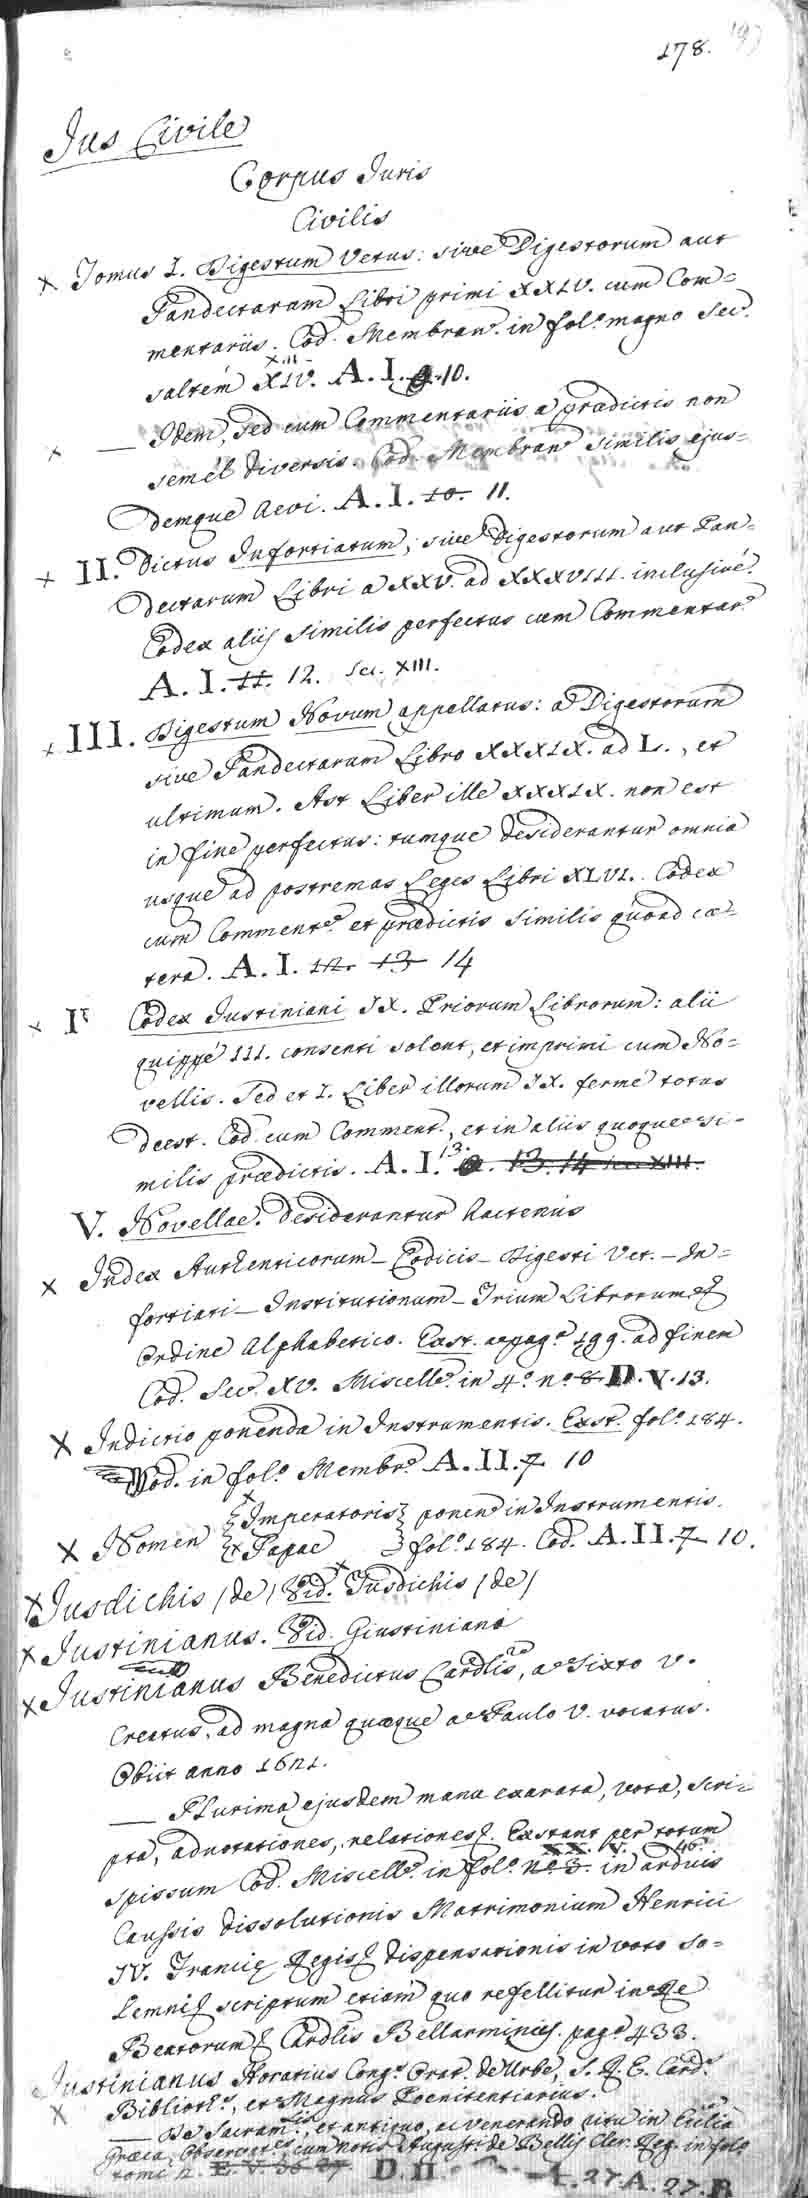 178.
Jus Civile
Corpus Juris
Civilis
× Tomus I. Digestum Vetus: sive Digestorum aut
Pandectarum Libri primi XXIV. cum Com-
mentariis. Cod. Membran. in fol.º magno Sec.
XIII
saltém XIV. A. I. 10.
× — Idem, sed cum Commentariis a prædictis non
semél diversis. Cod. Membran. similis ejus-
demque Aevi. A. I. 10. 11.
× II. Dictus Infortiatum, sive Digestorum aut Pan-
dectarum Libri a XXV. ad XXXVIII. inclusivé.
Codex aliis similis perfectus cum Commentar.
A. I. 11. 12. Sec. XIII.
× III. Digestum Novum appellatus: a Digestorum
sive Pandectarum Libro XXXIX. ad L., et
ultimum. Ast Liber ille XXXIX. non est
in fine perfectus: tumque desiderantur omnia
usque ad postremas Leges Libri XLVI. Codex
cum Comment.º et prædictis similis quoad cæ-
tera. A. I. 12. 13 14
× Codex Justiniani IX. Priorum Librorum: alii
quippé III. conseri solent, et imprimi cum No-
vellis. Sed et I. Liber illorum IX. fermé totus
deest. Cod. cum Comment., et in aliis quoque si-
milis prædictis. A. I. 13. 13. 14 sec. XIII.
V. Novellae. desiderantur hactenus
× Index Authenticorum – Codicis – Digesti Vet. – In-
fortiati – Institutionum – Trium Librorum
Ordine Alphabetico. Exst. a pag.ª 199. ad finem
Cod. Sec. XV. Miscell.º in 4.º n.º 8 D. V. 13.
× Indictio ponenda in Instrumentis. Exst. fol.º 184.
Cod. in fol.º Membr.º A. II. 7 10
× Nomen { Imperatoris } ponen. in Instrumentis.
{ × Papae } fol.º 184. Cod. A. II. 7 10.
× Jusdichis (de) Vid. × Jusdichis (de)
× Justinianus. Vid. Giustiniano
× Justinianus Benedictus Cardlis, a Sixto V.
Creatus, ad magna quæque a Paulo V. vocatus.
Obiit anno 1621.
— Plurima ejusdem manu exarata, vota, scri-
pta, adnotationes, relationes. Exstant per totum
XX. V. 46.
spissum Cod. Miscell.º in fol.º n.º 3. in arduis
Caussis dissolutionis Matrimonium Henrici
IV. Franciæ Regis dispensationis in voto so-
lemni scriptum etiam quo refellitur in Re
Beatorum Cardlis Bellarminus. pag.ª 433.
Justinianus Horatius Cong.º Orat. de Urbe, S. R. E. Card.
× Biblioth.s, et Magnus Poenitentiarius.
— De Sacram.tis, et antiquo, ac venerando ritu in Ecclia
Græca Observat.es, cum notis Augusti. de Bellis Cler. Reg. in fol.º
tomi 2. E. V. 36 27 D. II. 27. A. 27. B